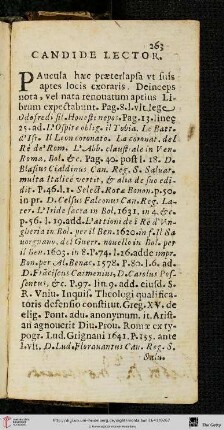 263
CANDIDE LECTOR.
PAucula hæc præterlapsa vt suis
aptes locis exoraris. Deinceps
nota, vel nata renouatum aptius Li-
brum expectabunt. Pag.8.l.vlt.lege
Odofredi fil. Honesti nepos. Pag.13.lineę
25.ad. L'Ospite oblig. il Tobia. Le Barc-
Il Leon coronato. La coronat. del
Rè de'Rom. L'Abb. claustrale in Ven.
Roma, Bol. &c. Pag. 40. post l. 18. D.
Blasius Cialdinus Can. Reg. S. Saluat.
multa Italicè vertit, & alia de suo edi-
dit. P.46.l.1. Select. Rotæ Bonon. p.50.
in pr. D. Celsus Falconus Can. Reg. La-
ter. L'Iride sacra in Bol. 1631. in 4. &c.
p.56. l.19. add. L'attioni de i Rè d'Vn-
gheria in Bol. per il Ben. 1620. in f. Il Sa-
uorgnano, del Guerr. nouello in Bol. per
il Ben. 1603. in 8. P.74. l.26. adde impr.
Bonon. per Al. Benac. 1578. P.80. l.6. ad.
D. Frāciscus Carmenius, D. Carolus Pes-
sentus, &c. P.97. lin.9. add. eiusd. S.
R. Vniu. Inquis. Theologi qualifica-
toris defensio constitut. Greg. XV. de
elig. Pont. adu. anonymum. it. Arist-
an agnouerit Diu. Prou. Romæ ex ty-
pogr. Lud. Grignani 1641. P.155. ante
l.vlt. D. Lud. Florauantus Can. Reg. S.